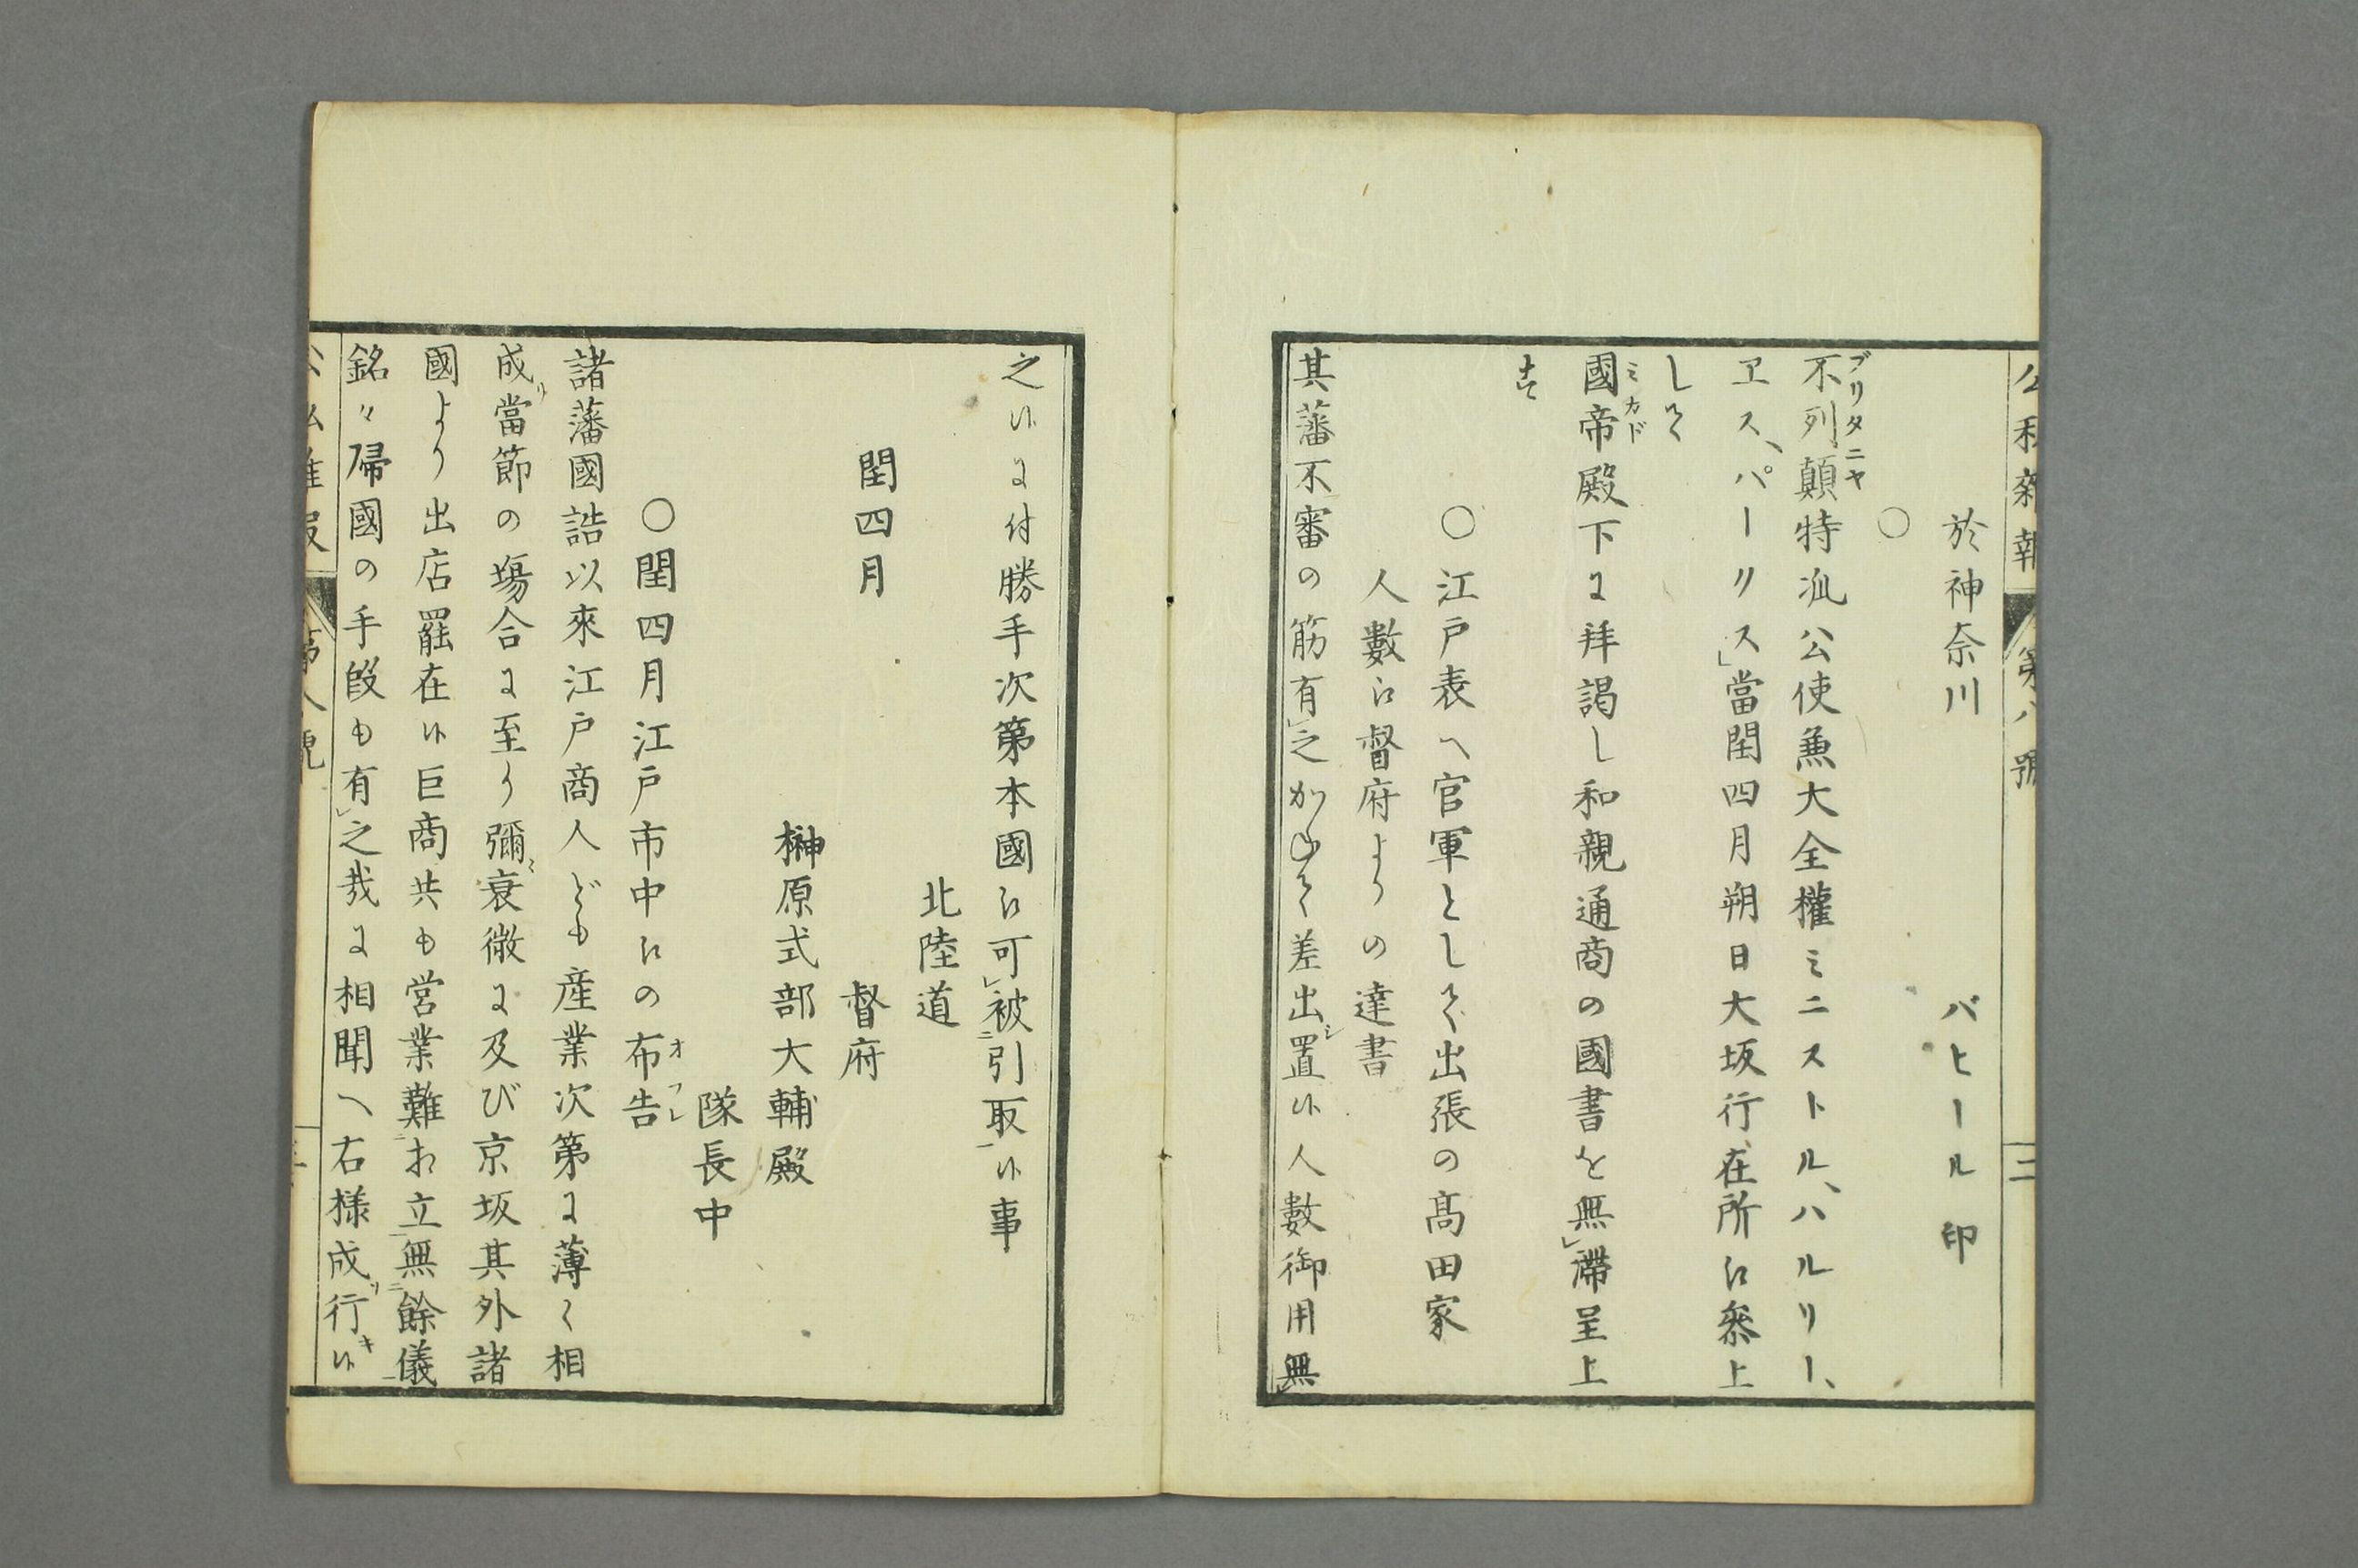 公私雑報 第八號 二
於神奈川 バヒール 印
○
不列顛特派公使兼大全權ミニストル、ハルリー、
ブリタニヤ
ヱス、パークス」當閏四月朔日大坂行在所に参上
して
國帝殿下に拝謁し和親通商の國書を無滞呈上
ミカド
す
○江戸表へ官軍として出張の髙田家
人數に督府よりの達書
其藩不審の筋有之かねて差出置候人數御用無
シ
之候に付勝手次第本國に可被引取候事
北陸道
督府
閏四月
榊原式部大輔殿
隊長中
○閏四月江戸市中にの布告
オフレ
諸藩國詰以來江戸商人ども産業次第に薄く相
成當節の塲合に至り彌衰微に及び京坂其外諸
リ ミ
國より出店罷在候巨商共も営業難相立無餘儀
銘々帰國の手段も有之哉に相聞へ右様成行候
リ キ
公私雑報 第八號 三